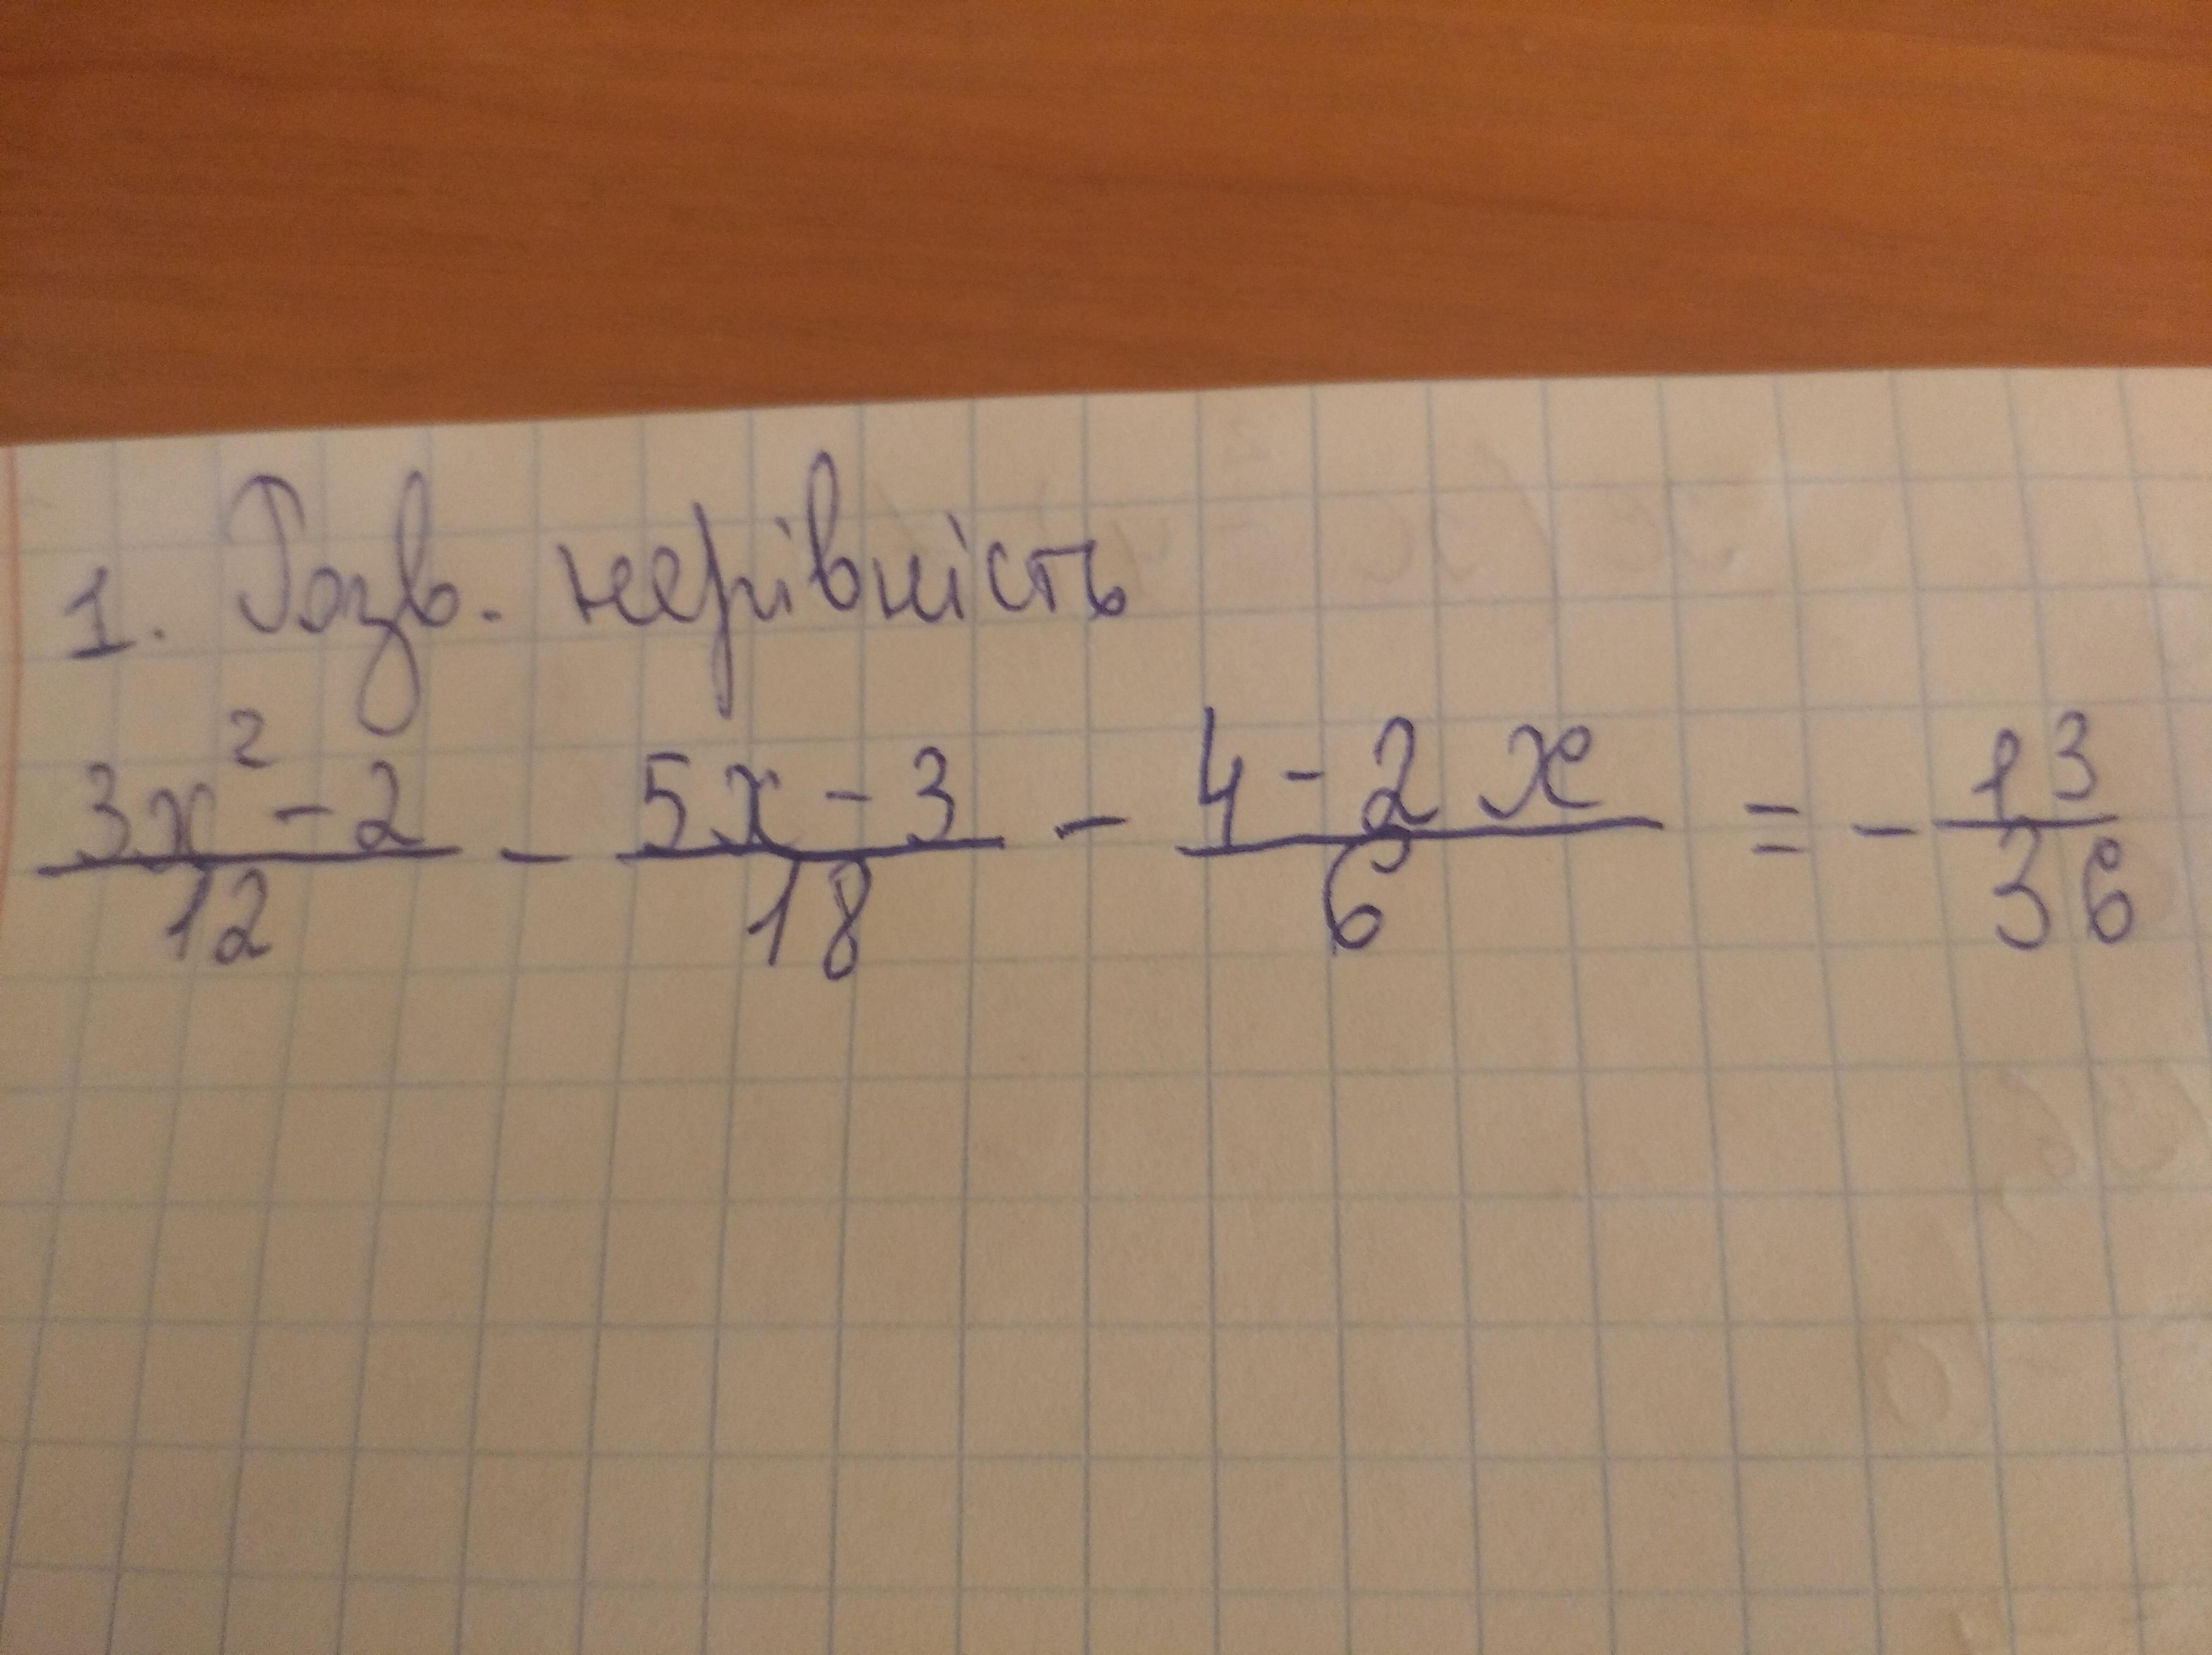 1. Розв. нерівність
\frac{3x^2-2}{12} - \frac{5x-3}{18} - \frac{4-2x}{6} = -\frac{13}{36}